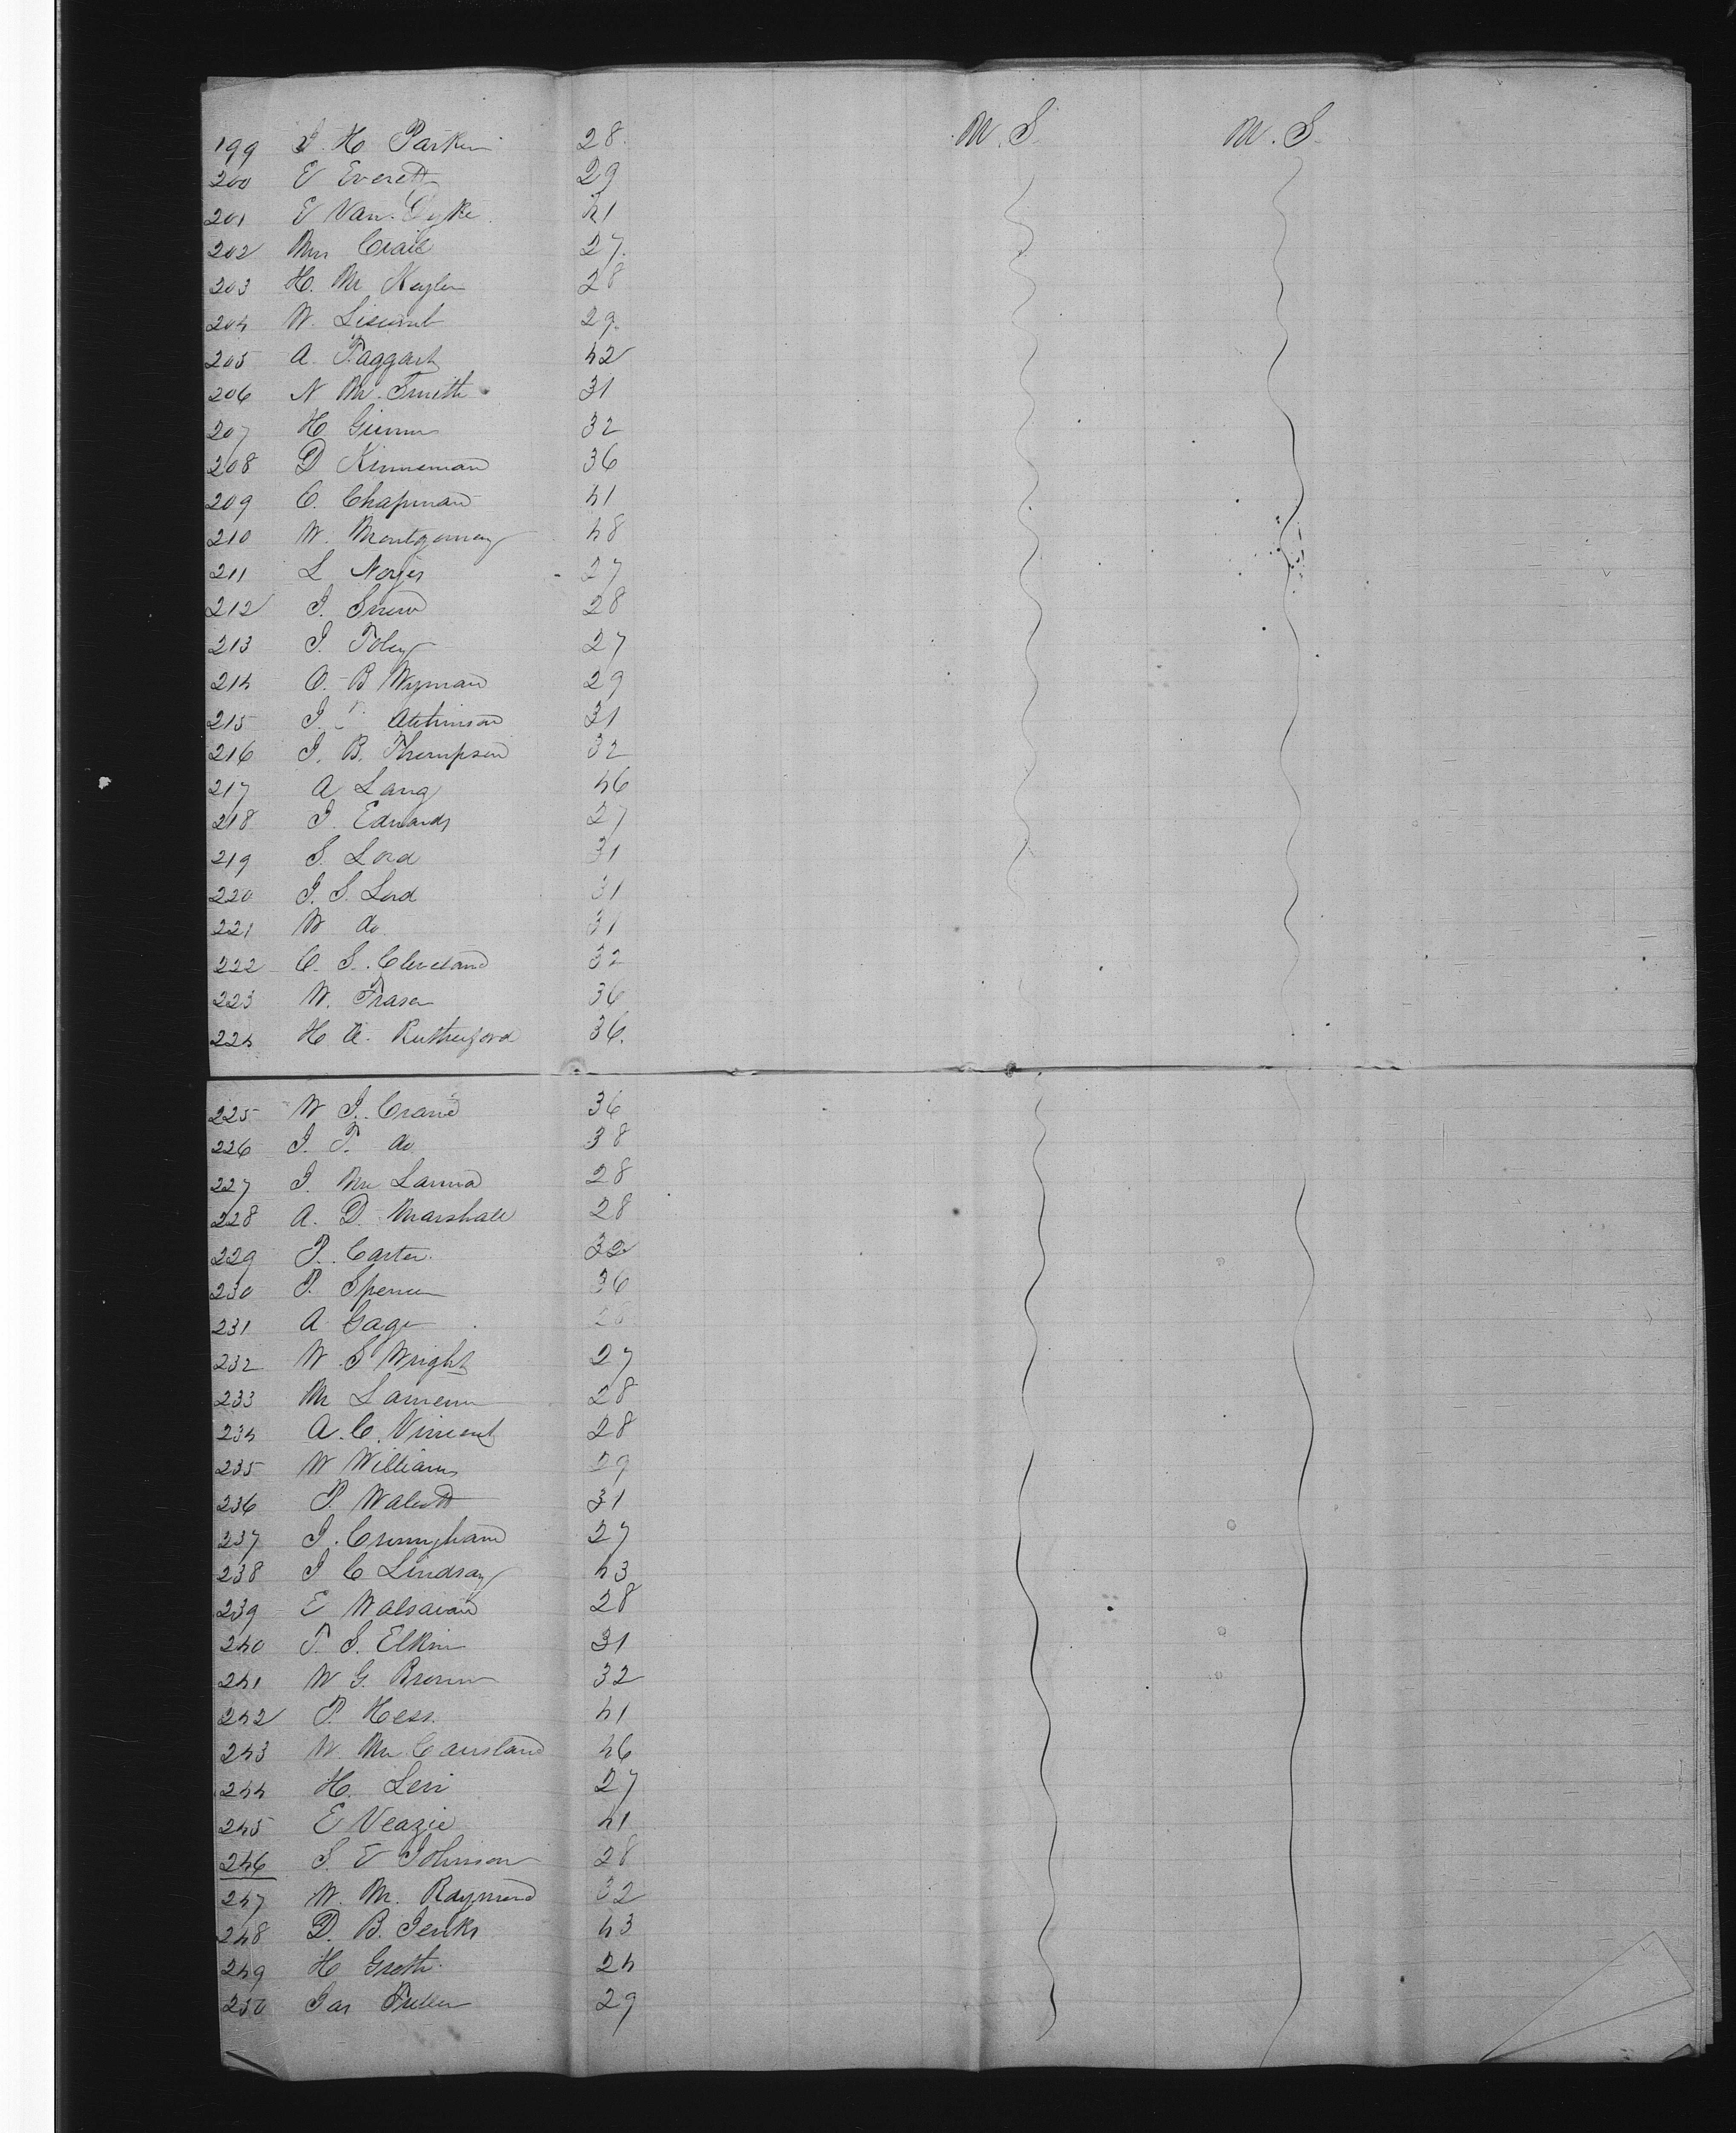 199 J. H Parker 28. M. S. M. S.
200 E Everett 29
201 E Van Dyke 41
202 Wm Crail 27.
203 H. M Keyler 28
204 W. Liscomb 29.
205 A. Taggart 42
206 N M. Smith 31
207 H 32
208 D Kinneman 36
209 C. Chapman 41
210 W. Montgomery 48
211 L Noyes 27
212 J. Snow 28
213 J. Tobey 27
214 O. B Wyman 29
215 J. T. Atchinson 31
216 J. B. Thompson 32
217 A Lang 46
218 J. Edwards 27
219 S. Lord 31
220 J. S. Lord 31
221 W do 31
222 C. S. Cleveland 32
223 W. Fraser 36
224 H A. Rutherford 36.
225 W J. Crane 36
226 J. T. do 38
227 J. M 28
228 A. D. Marshall 28
229 P. Carter. 32
230 P. Spencer 36
231 A Gage 28
232 W. S Wright 27
233 M 28
234 A. C. Vincent 28
235 W Williams 29
236 P. Walcott 31
237 J. Cunningham 27
238 J C Lindsay 43
239 E 28
240 T. S. Elkin 31
241 W G. Brown 32
242 P. Hess. 41
243 W. Mc Causland 46
244 H. Levi 27
245 E Veazie 41
246 S. E Johnson 28
247 W. M. Raymond 32
248 D. B. Jenks 43
249 H Groth 24
250 Jas Fuller 29